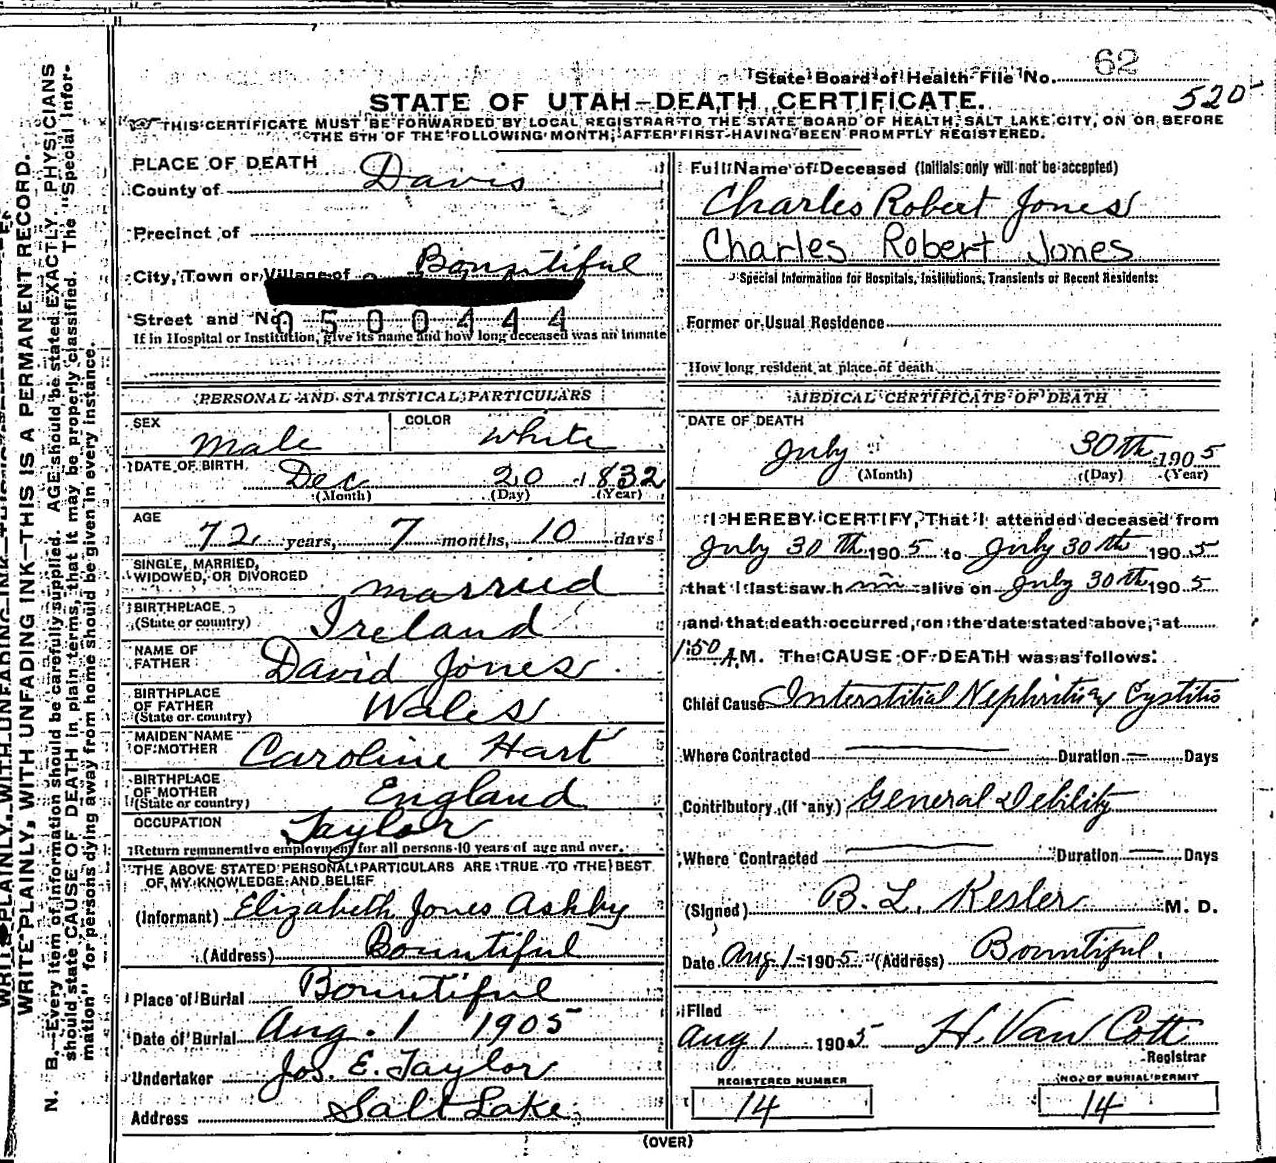 State Board of Health File No. 62
520
STATE OF UTAH—DEATH CERTIFICATE.
THIS CERTIFICATE MUST BE FORWARDED BY LOCAL REGISTRAR TO THE STATE BOARD OF HEALTH, SALT LAKE CITY, ON OR BEFORE
THE 5TH OF THE FOLLOWING MONTH, AFTER FIRST HAVING BEEN PROMPTLY REGISTERED.
PLACE OF DEATH
County of Davis
Precinct of
City, Town or Village of Bountiful
Street and No. 0500444
If in Hospital or Institution, give its name and how long deceased was an inmate
PERSONAL AND STATISTICAL PARTICULARS
SEX Male COLOR White
DATE OF BIRTH Dec 20 1832
(Month) (Day) (Year)
AGE 72 years, 7 months, 10 days
SINGLE, MARRIED,
WIDOWED, OR DIVORCED married
BIRTHPLACE
(State or country) Ireland
NAME OF
FATHER David Jones.
BIRTHPLACE
OF FATHER
(State or country) Wales
MAIDEN NAME
OF MOTHER Caroline Hart
BIRTHPLACE
OF MOTHER
(State or country) England
OCCUPATION Taylor
Return remunerative employment for all persons 10 years of age and over.
THE ABOVE STATED PERSONAL PARTICULARS ARE TRUE TO THE BEST
OF MY KNOWLEDGE AND BELIEF
(Informant) Elizabeth Jones Ashby
(Address) Bountiful
Place of Burial Bountiful
Date of Burial Aug. 1 1905
Undertaker Jos. E. Taylor
Address Salt Lake
Full Name of Deceased (Initials only will not be accepted)
Charles Robert Jones
Charles Robert Jones
Special Information for Hospitals, Institutions, Transients or Recent Residents:
Former or Usual Residence
How long resident at place of death
MEDICAL CERTIFICATE OF DEATH
DATE OF DEATH
July 30th 1905
(Month) (Day) (Year)
I HEREBY CERTIFY, That I attended deceased from
July 30th 1905 to July 30th 1905
that I last saw him alive on July 30th 1905
and that death occurred, on the date stated above, at
1:50 A.M. The CAUSE OF DEATH was as follows:
Chief Cause Interstitial Nephritis Cystitis
Where Contracted — Duration — Days
Contributory (if any) General Debility
Where Contracted — Duration — Days
(Signed) B. L. Kesler M. D.
Date Aug 1 1905 (Address) Bountiful.
Filed
Aug 1 1905 H. Van Cott
Registrar
REGISTERED NUMBER
14
NO. OF BURIAL PERMIT
14
(OVER)
WRITE PLAINLY, WITH UNFADING INK—THIS IS A PERMANENT RECORD.
N. B.—Every item of information should be carefully supplied. AGE should be stated EXACTLY. PHYSICIANS
should state CAUSE OF DEATH in plain terms, that it may be properly classified. The "Special Infor-
mation" for persons dying away from home should be given in every instance.